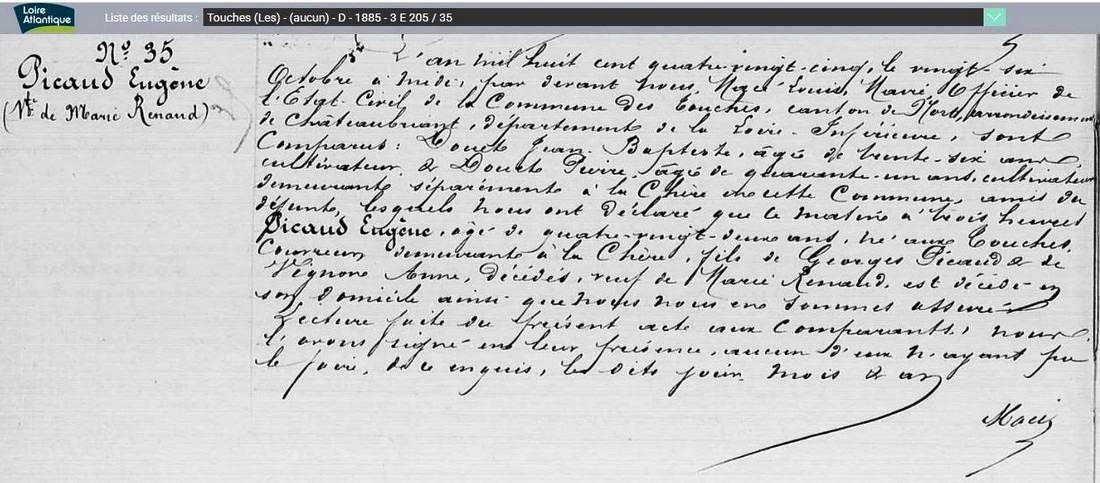 Loire
Atlantique
Liste des résultats : Touches (Les) - (aucun) - D - 1885 - 3 E 205 / 35
Nº 35
Picaud Eugène
(Vf. de Marie Renaud)
L'an mil huit cent quatre-vingt-cinq, le vingt-six
Octobre à midi, par devant nous, Macé Louis, Maire Officier de
l'Etat-Civil de la Commune des Touches, canton de Nort, arrondissement
de Châteaubriant, département de la Loire-Inférieure, sont
Comparus : Douet Jean-Baptiste, âgé de trente-six ans,
cultivateur, & Douet Pierre, âgé de quarante-un ans, cultivateur
demeurants séparément à la Chère en cette Commune, amis du
défunt, lesquels nous ont déclaré que ce matin à trois heures
Picaud Eugène, âgé de quatre-vingt-deux ans, né aux Touches,
Couvreur demeurant à la Chère, fils de Georges Picaud & de
Anne, décédés, veuf de Marie Renaud, est décédé en
son domicile ainsi que nous nous en sommes assuré
Lecture faite du présent acte aux Comparants, nous
l'avons signé en leur présence, aucun d'eux n'ayant pu
le faire, de ce enquis, les dits jour mois & an
Macé